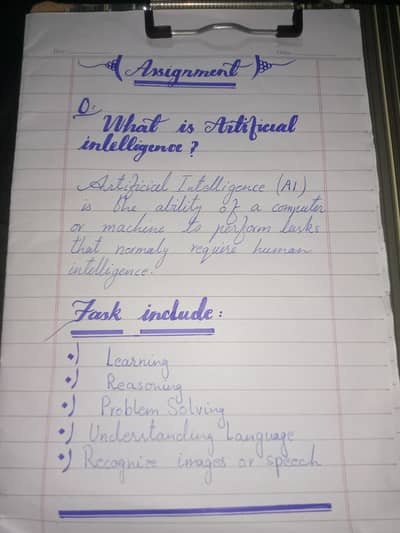 Assignment
Q:
What is Artificial
intelligence?
Artificial Intelligence (AI)
is the ability of a computer
or machine to perform tasks
that normaly require human
intelligence.
Task include:
Learning
Reasoning
Problem Solving
Understanding Language
Recognize images or speech